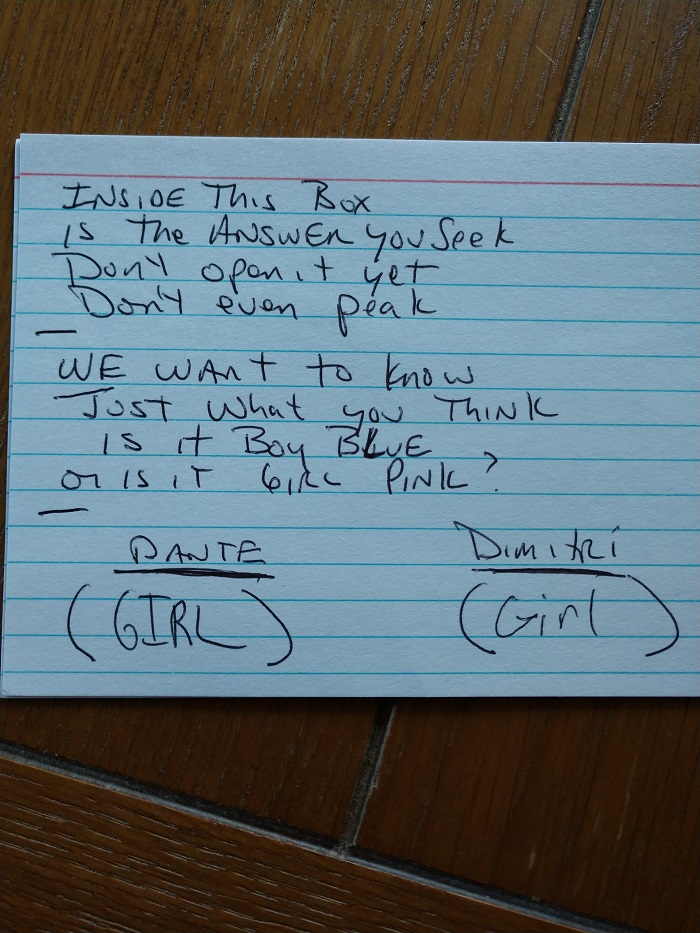 INSIDE This Box
is the ANSWER you Seek
Don't open it yet
Don't even peak
WE WANt to know
Just what you THINK
is it Boy BLUE
or is iT GIRL PINK?
DANTE Dimitri
(GIRL) (Girl)